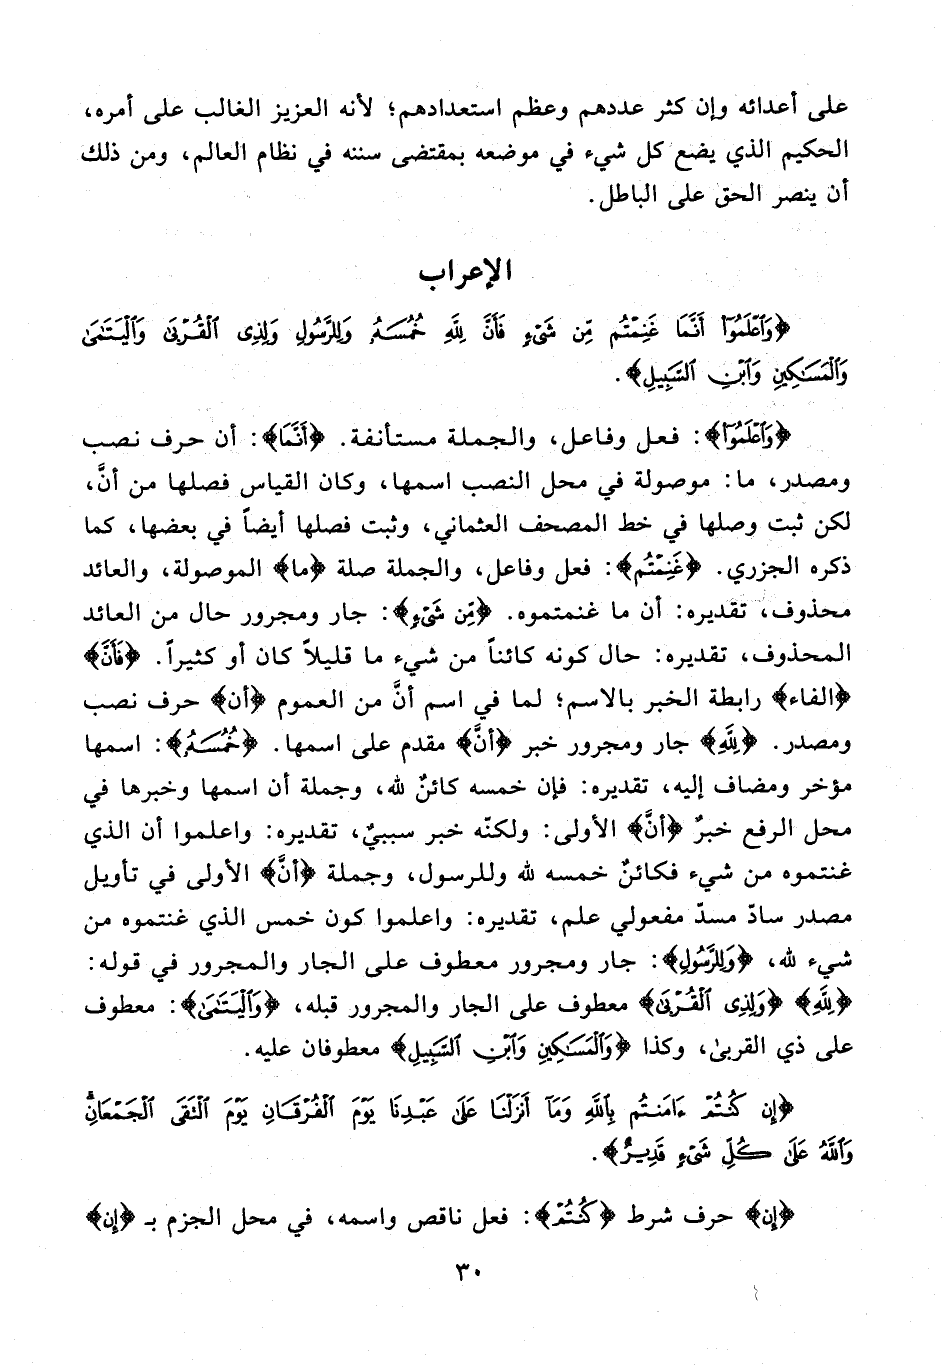 على أعدائه وإن كثر عددهم وعظم استعدادهم؛ لأنه العزيز الغالب على أمره،
الحكيم الذي يضع كل شيء في موضعه بمقتضى سننه في نظام العالم، ومن ذلك
أن ينصر الحق على الباطل.
الإعراب
﴿وَٱعْلَمُوٓا۟ أَنَّمَا غَنِمْتُم مِّن شَىْءٍ فَأَنَّ لِلَّهِ خُمُسَهُۥ وَلِلرَّسُولِ وَلِذِى ٱلْقُرْبَىٰ وَٱلْيَتَٰمَىٰ
وَٱلْمَسَٰكِينِ وَٱبْنِ ٱلسَّبِيلِ﴾.
﴿وَٱعْلَمُوٓا۟﴾: فعل وفاعل، والجملة مستأنفة. ﴿أَنَّمَا﴾: أن حرف نصب
ومصدر، ما: موصولة في محل النصب اسمها، وكان القياس فصلها من أنَّ،
لكن ثبت وصلها في خط المصحف العثماني، وثبت فصلها أيضاً في بعضها، كما
ذكره الجزري. ﴿غَنِمْتُم﴾: فعل وفاعل، والجملة صلة ﴿ما﴾ الموصولة، والعائد
محذوف، تقديره: أن ما غنمتموه. ﴿مِّن شَىْءٍ﴾: جار ومجرور حال من العائد
المحذوف، تقديره: حال كونه كائناً من شيء ما قليلاً كان أو كثيراً. ﴿فَأَنَّ﴾
﴿الفاء﴾ رابطة الخبر بالاسم؛ لما في اسم أنَّ من العموم ﴿أن﴾ حرف نصب
ومصدر. ﴿لِلَّهِ﴾ جار ومجرور خبر ﴿أنَّ﴾ مقدم على اسمها. ﴿خُمُسَهُۥ﴾: اسمها
مؤخر ومضاف إليه، تقديره: فإن خمسه كائنٌ لله، وجملة أن اسمها وخبرها في
محل الرفع خبرٌ ﴿أنَّ﴾ الأولى: ولكنّه خبر سببيٌ، تقديره: واعلموا أن الذي
غنتموه من شيء فكائنٌ خمسه لله وللرسول، وجملة ﴿أنَّ﴾ الأولى في تأويل
مصدر سادّ مسدّ مفعولي علم، تقديره: واعلموا كون خمس الذي غنتموه من
شيء لله، ﴿وَلِلرَّسُولِ﴾: جار ومجرور معطوف على الجار والمجرور في قوله:
﴿لِلَّهِ﴾ ﴿وَلِذِى ٱلْقُرْبَىٰ﴾ معطوف على الجار والمجرور قبله، ﴿وَٱلْيَتَٰمَىٰ﴾: معطوف
على ذي القربىٰ، وكذا ﴿وَٱلْمَسَٰكِينِ وَٱبْنِ ٱلسَّبِيلِ﴾ معطوفان عليه.
﴿إِن كُنتُمْ ءَامَنتُم بِٱللَّهِ وَمَآ أَنزَلْنَا عَلَىٰ عَبْدِنَا يَوْمَ ٱلْفُرْقَانِ يَوْمَ ٱلْتَقَى ٱلْجَمْعَانِۗ
وَٱللَّهُ عَلَىٰ كُلِّ شَىْءٍ قَدِيرٌ﴾.
﴿إِن﴾ حرف شرط ﴿كُنتُمْ﴾: فعل ناقص واسمه، في محل الجزم بـ ﴿إن﴾
٣٠